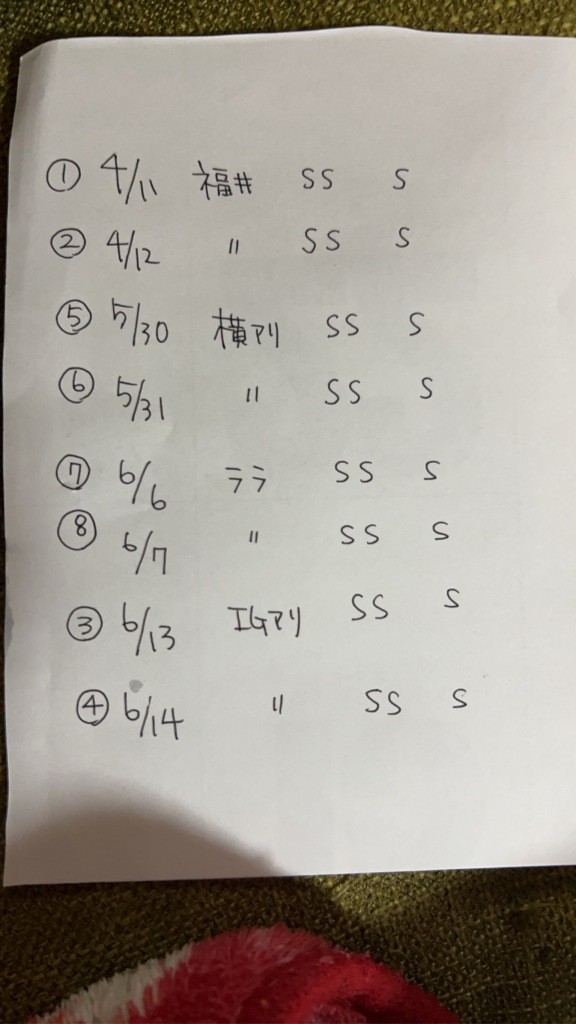 ① 4/11 福井 SS S
② 4/12 〃 SS S
⑤ 5/30 横アリ SS S
⑥ 5/31 〃 SS S
⑦ 6/6 ララ SS S
⑧ 6/7 〃 SS S
③ 6/13 IGアリ SS S
④ 6/14 〃 SS S